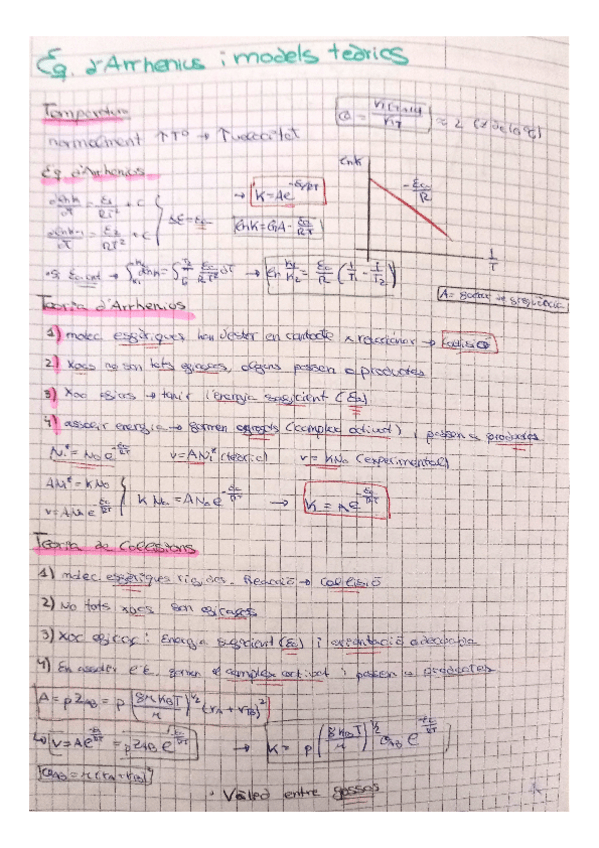 Eq. d'Arrhenius i models teòrics
Temperatura
normalment ↑Tª → ↑velocitat
Q = k(T+10)/kT ≈ 2
Eq. d'Arrhenius
→ k=Ae^-Ea/RT
lnK = lnA - Ea/RT
lnK
-Ea/R
1/T
ΔE = Ea
→ ln k1/k2 = Ea/R (1/T1 - 1/T2)
A = factor
Teoria d'Arrhenius
1) molec. esfèriques han d'estar en contacte x reaccionar → col·lisió
2) Xocs no son tots eficaços, alguns passen a productes
3) Xoc eficaç → tenir l'energia suficient (Ea)
4) assolir energia → formen agregats (complex activat) i passen a productes
Ni* = N0 e^-Ea/RT v=ANi* (teòric) v = kN0 (experimental)
ANi* = kN0
k N0 = AN0 e^-Ea/RT → k = A e^-Ea/RT
Teoria de Colisions
1) molec esfèriques rígides. Reacció → col·lisió
2) No tots xocs son eficaços
3) Xoc eficaç: Energia suficient (Ea) i orientació adequada
4) En assolir et. formen el complex activat i passen a productes
A = p ZAB = p (8πKBT/μ)^1/2 (rA + rB)^2
= p ZAB e^-Ea/RT → k = p (8 KBT/μ)^1/2 σAB e^-Ea/RT
σAB = π(rA+rB)^2
· Vàlid entre gasos